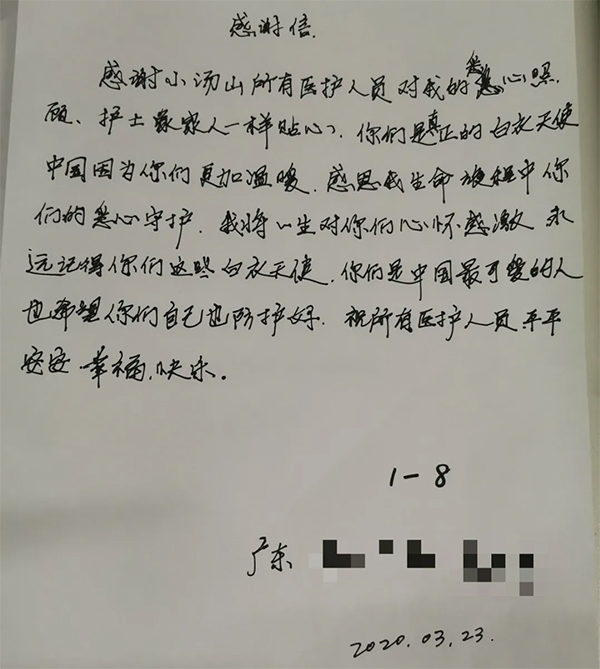 感谢信.
感谢小汤山所有医护人员对我的悉心照
顾、护士象家人一样贴心、你们是真正的白衣天使
中国因为你们更加温暖.感恩我生命旅程中你
们的悉心守护.我将一生对你们心怀感激 永
远记得你们这些白衣天使.你们是中国最可爱的人
也希望你们自己也防护好.祝所有医护人员平平
安安 幸福,快乐。
1-8
广东
2020.03.23.